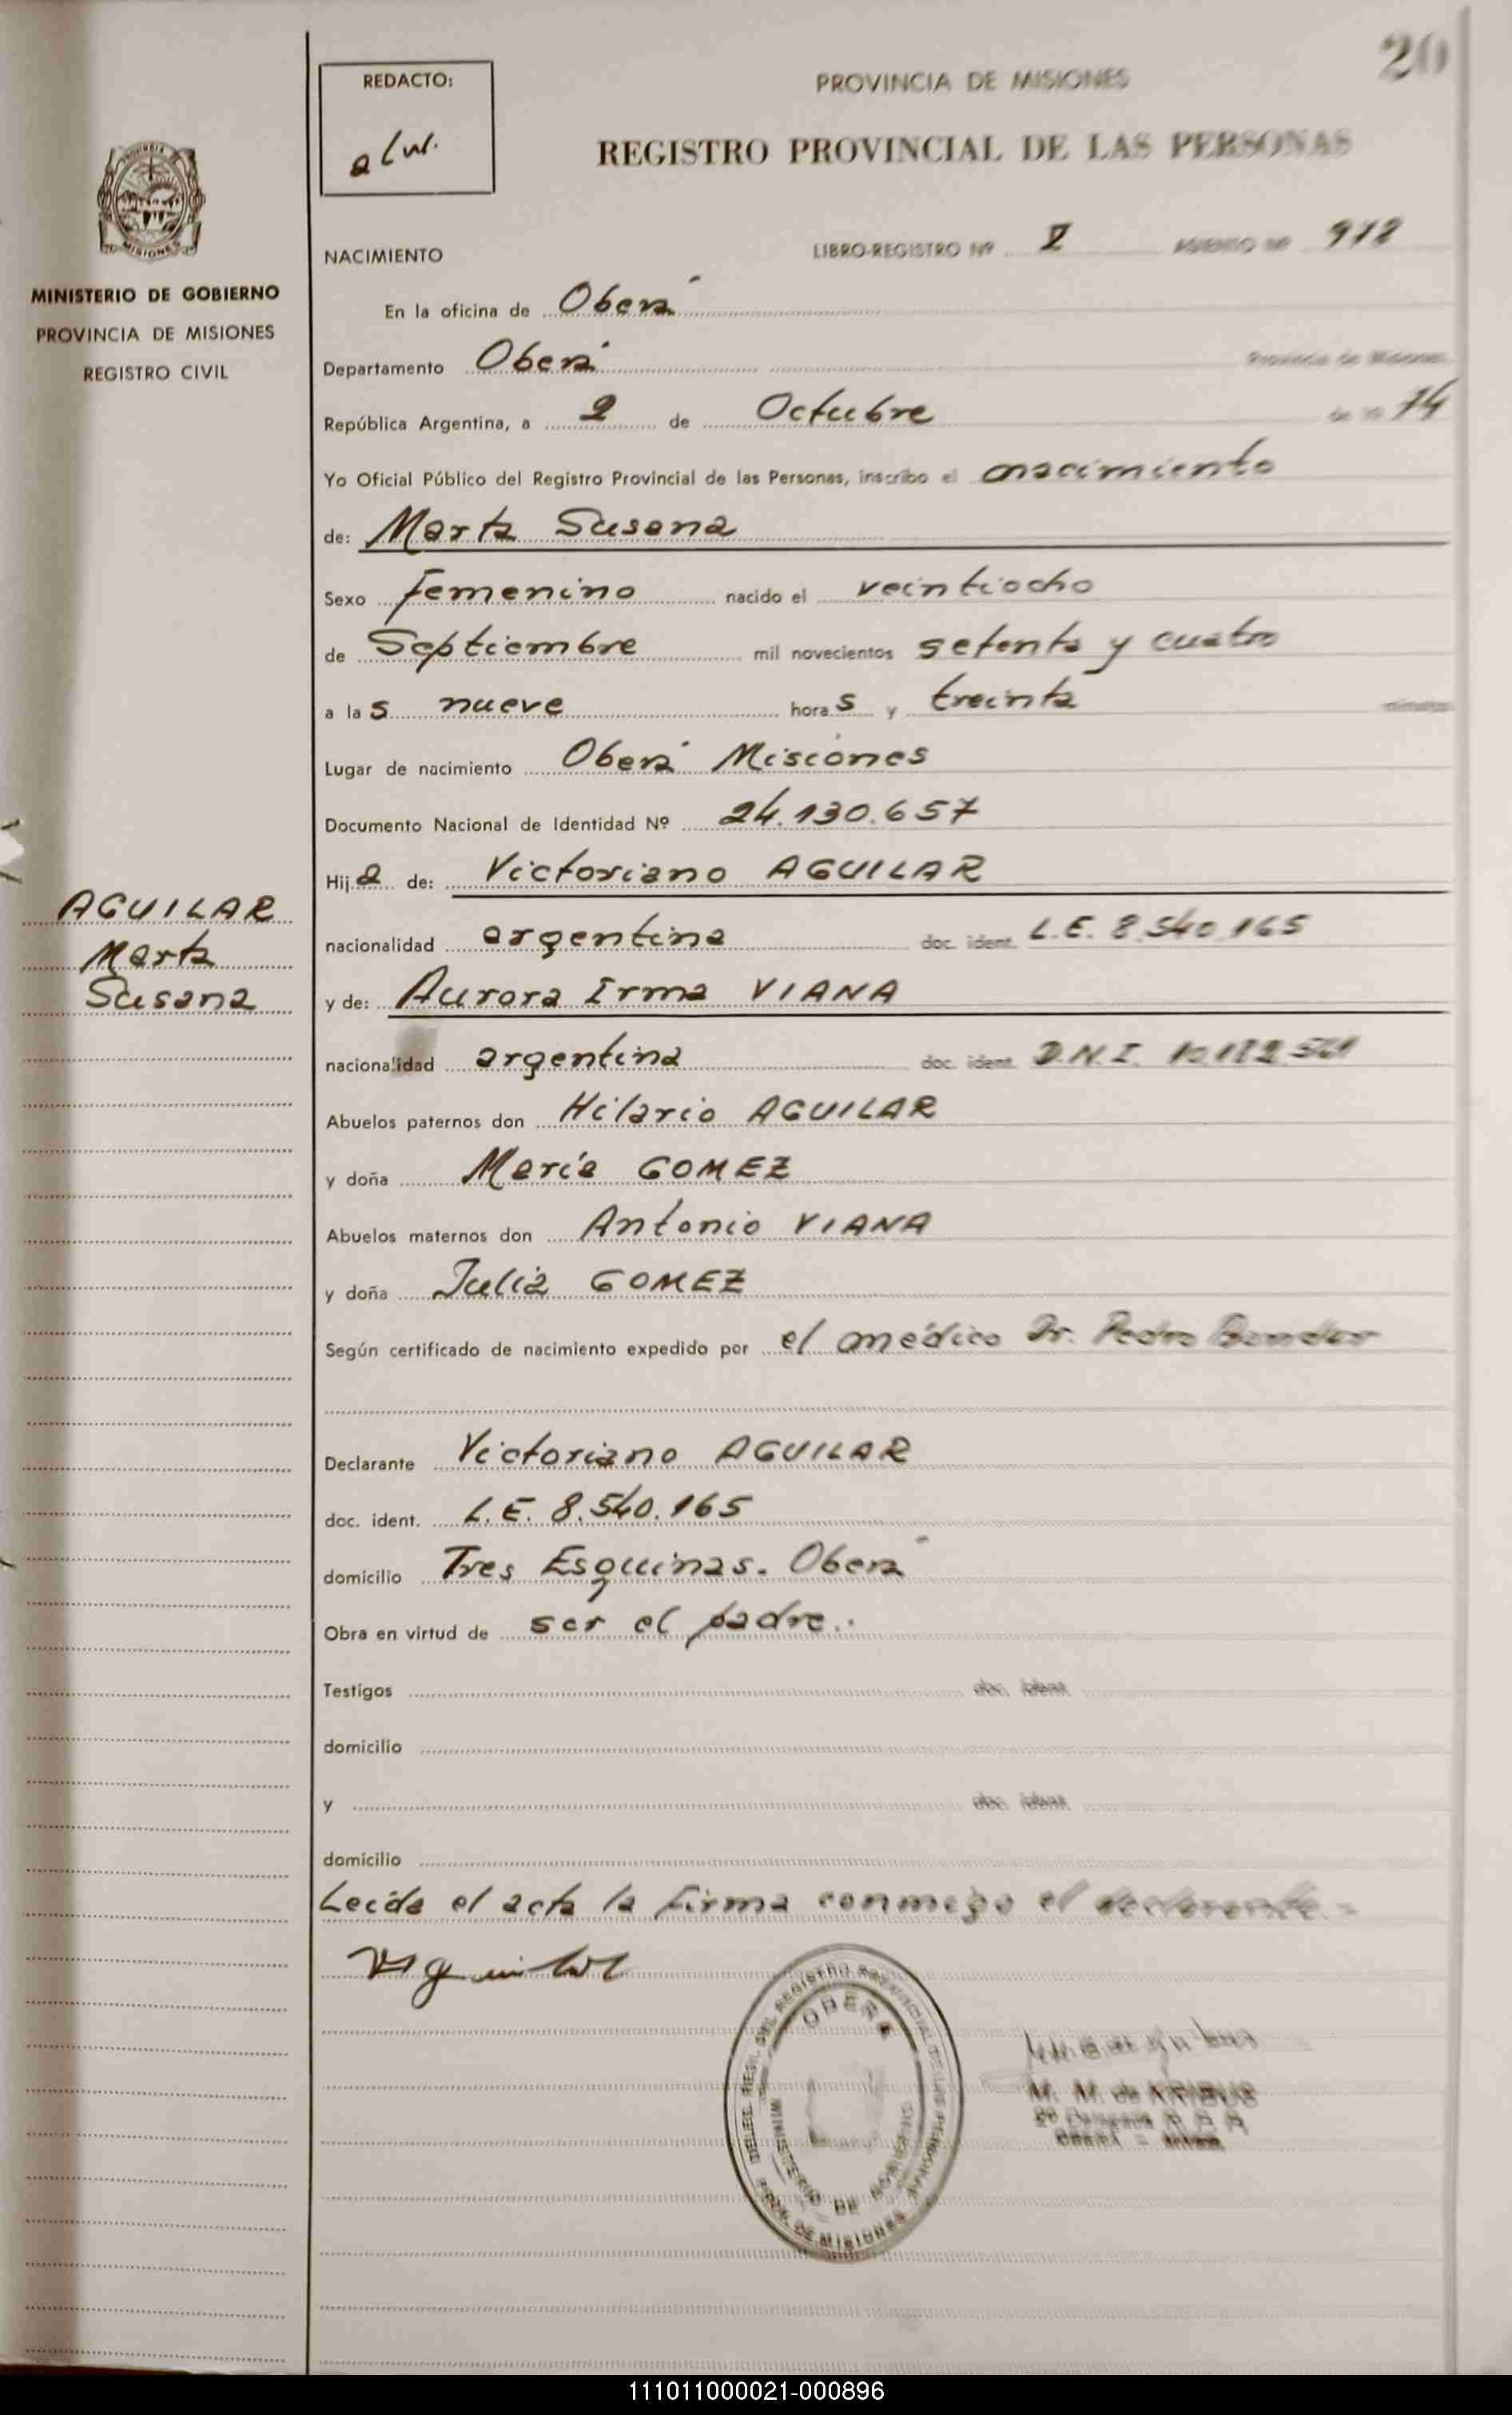 20
REDACTO:
PROVINCIA DE MISIONES
REGISTRO PROVINCIAL DE LAS PERSONAS
PROVINCIA DE
MISIONES
MINISTERIO DE GOBIERNO
PROVINCIA DE MISIONES
REGISTRO CIVIL
NACIMIENTO LIBRO-REGISTRO Nº ASIENTO Nº 912
En la oficina de Oberá
Departamento Oberá Provincia de Misiones
República Argentina, a 2 de Octubre de 19 74
Yo Oficial Público del Registro Provincial de las Personas, inscribo el nacimiento
de: Marta Susana
Sexo femenino nacido el veintiocho
de Septiembre mil novecientos setenta y cuatro
a las nueve horas y treinta minutos
Lugar de nacimiento Oberá Misiones
Documento Nacional de Identidad Nº 24.130.657
Hija de: Victoriano AGUILAR
AGUILAR
Marta
Susana
nacionalidad argentina doc. ident. L.E. 8.540.165
y de: Aurora Irma VIANA
nacionalidad argentina doc. ident. D.N.I. 10.182.561
Abuelos paternos don Hilario AGUILAR
y doña María GOMEZ
Abuelos maternos don Antonio VIANA
y doña Julia GOMEZ
Según certificado de nacimiento expedido por el médico Dr. Pedro
Declarante Victoriano AGUILAR
doc. ident. L.E. 8.540.165
domicilio Tres Esquinas. Oberá
Obra en virtud de ser el padre.
Testigos doc. ident.
domicilio
y doc. ident.
domicilio
Leída el acta la firma conmigo el declarante.=
REGISTRO PROVINCIAL DE LAS PERSONAS
OBERA
MINISTERIO DE GOBIERNO
PROV. DE MISIONES
M. M. de
111011000021-000896